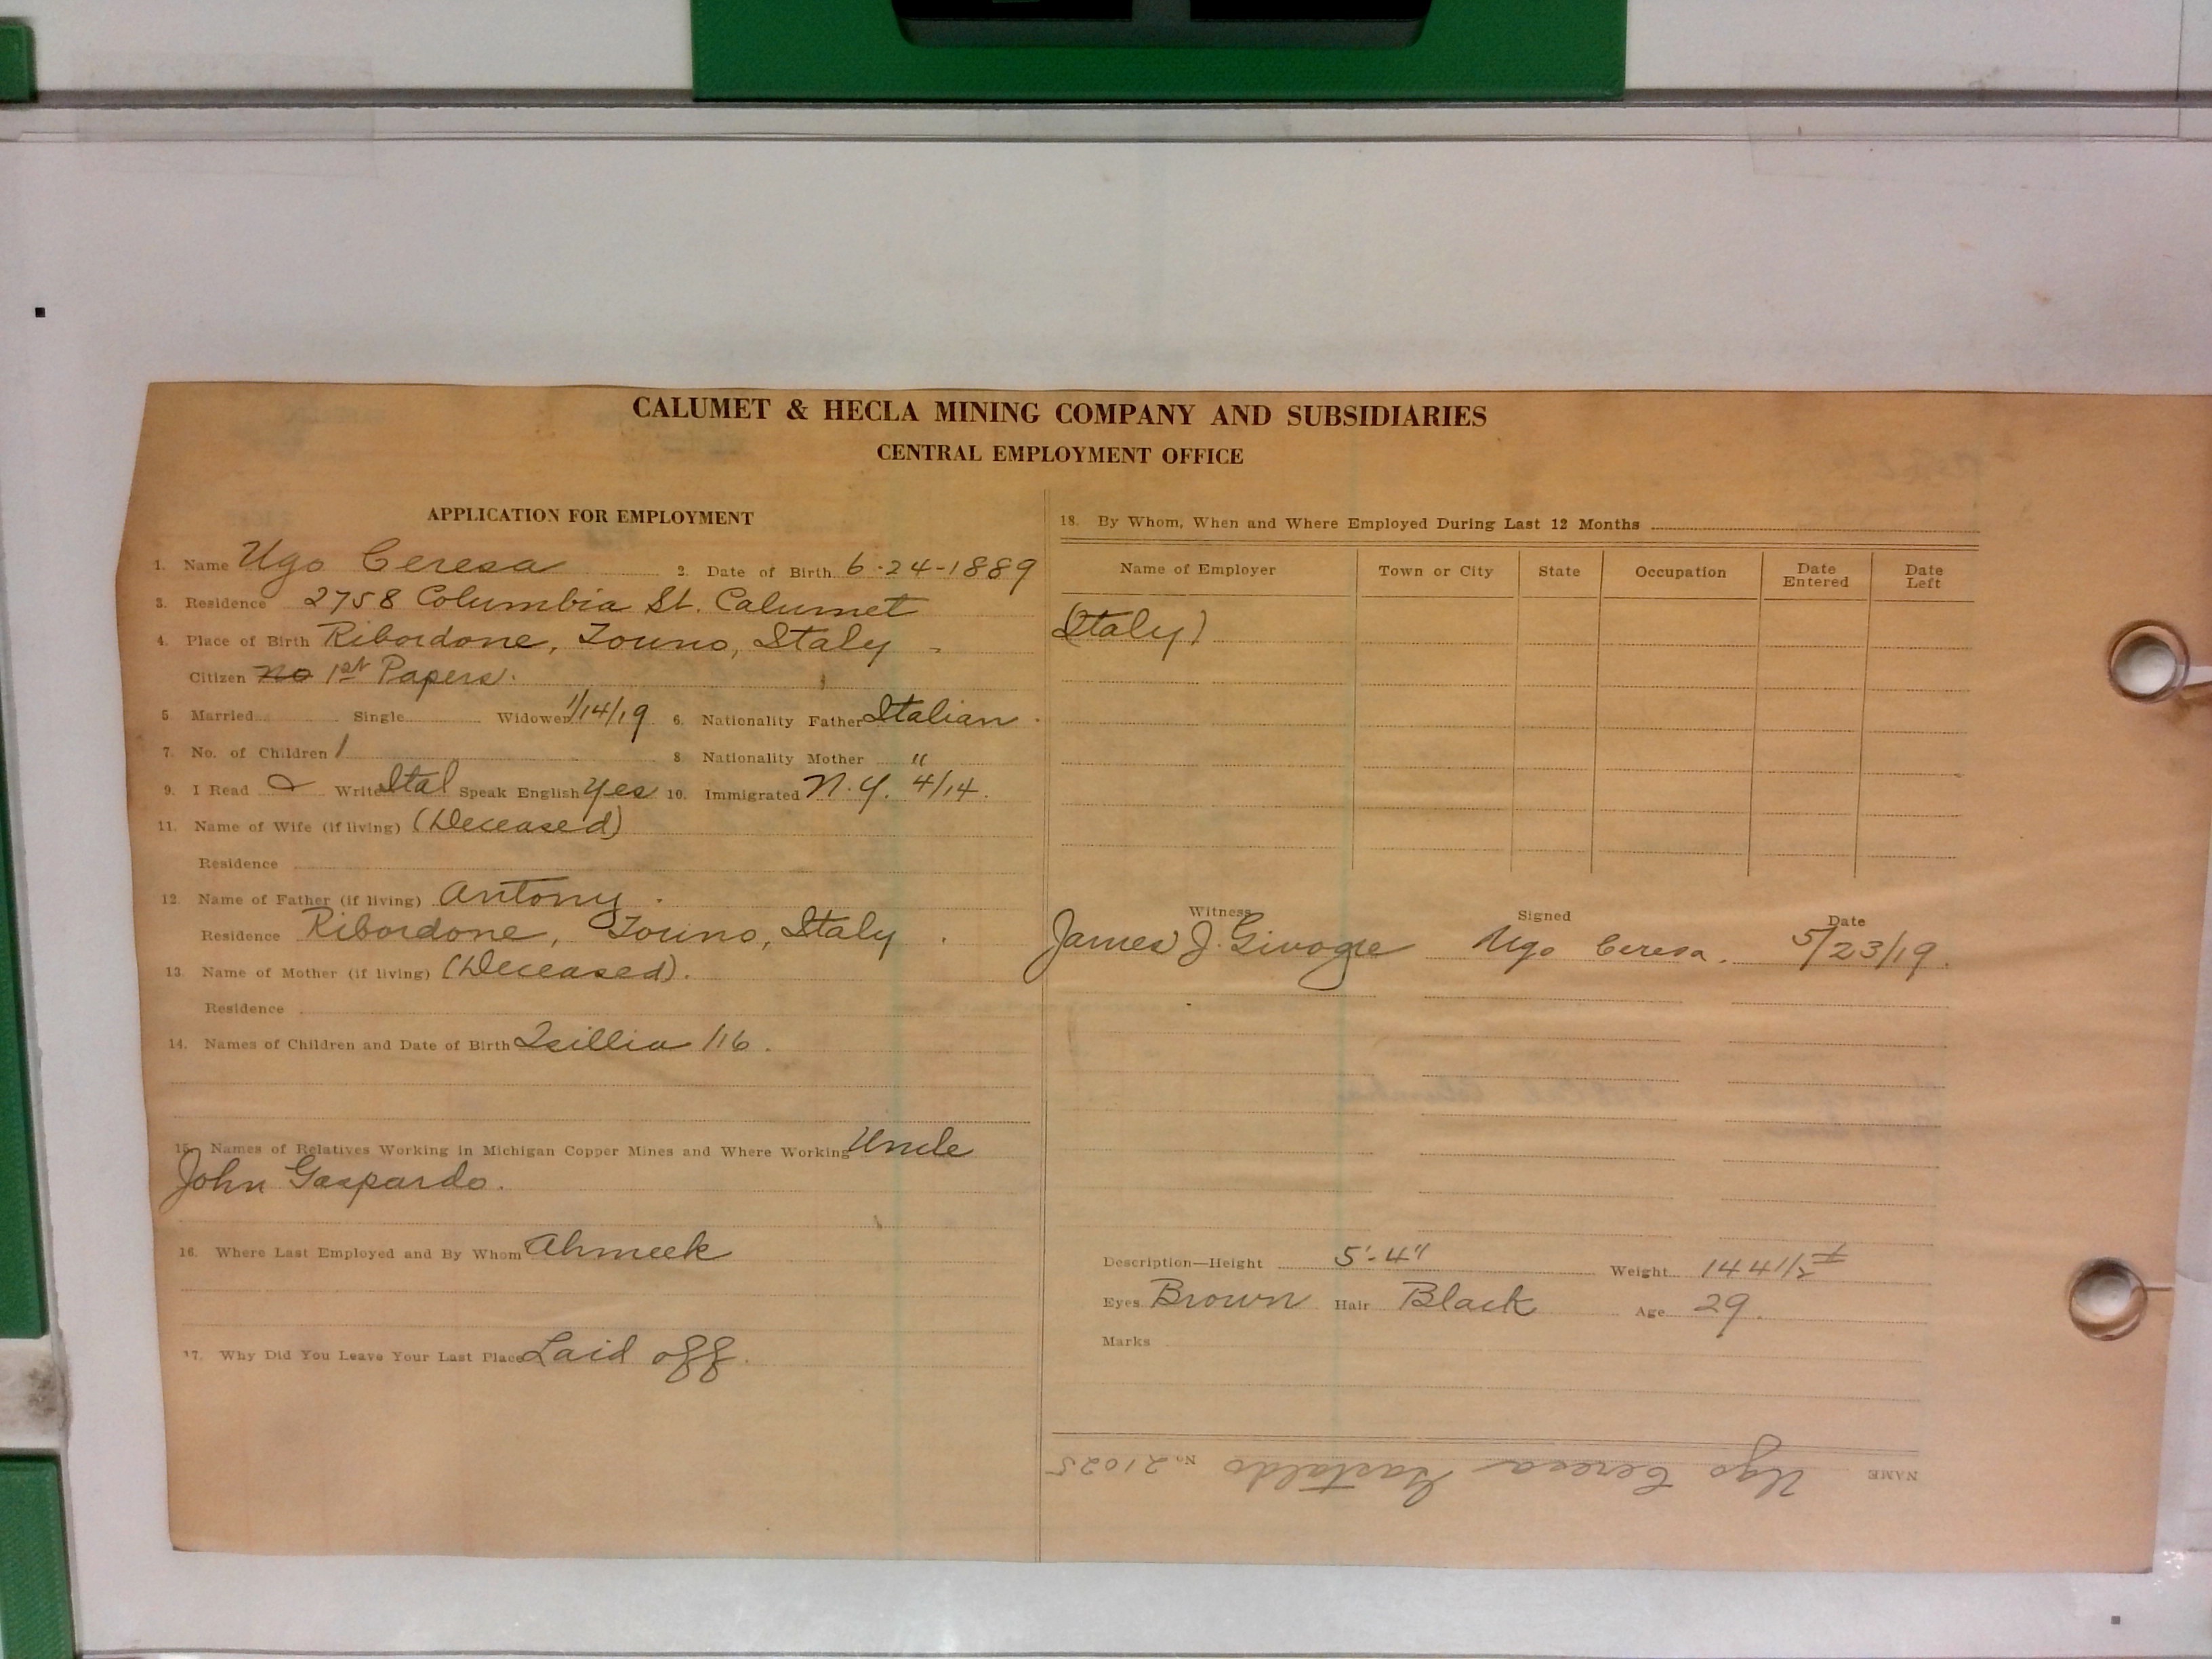 CALUMET & HECLA MINING COMPANY AND SUBSIDIARIES
CENTRAL EMPLOYMENT OFFICE
APPLICATION FOR EMPLOYMENT
1. Name Ugo Ceresa 2. Date of Birth 6-24-1889
3. Residence 2758 Columbia St. Calumet
4. Place of Birth Ribordone, Torino, Italy
Citizen no 1st Papers.
5 Married Single Widower 1/14/19 6. Nationality Father Italian
7. No. of Children 1 8 Nationality Mother "
9. I Read & Write Ital Speak English Yes 10. Immigrated N.Y. 4/14.
11. Name of Wife (if living) (Deceased)
Residence
12. Name of Father (if living) Antony.
Residence Ribordone, Torino, Italy.
13. Name of Mother (if living) (Deceased).
Residence
14. Names of Children and Date of Birth 116.
15. Names of Relatives Working in Michigan Copper Mines and Where Working Uncle
John Gaspardo.
16. Where Last Employed and By Whom Ahmeek
17. Why Did You Leave Your Last Place Laid off.
18. By Whom, When and Where Employed During Last 12 Months
Name of Employer Town or City State Occupation Date Entered Date Left
(Italy)
Witness Signed Date
James J. Ugo Ceresa. 5/23/19.
Description—Height 5'-4" Weight 144 1/2 #
Eyes Brown Hair Black Age 29.
Marks
NAME Ugo Ceresa Gastaldo No 21025